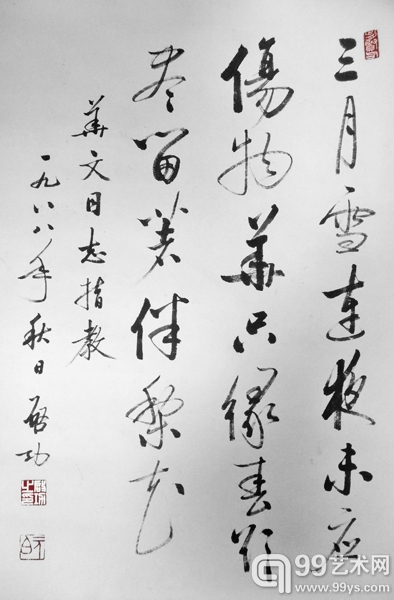 三月雪連夜未應
傷物華只緣春欲
盡留著伴梨花
華文同志指教
一九八八年秋日 啟功
99艺术网
www.99ys.com